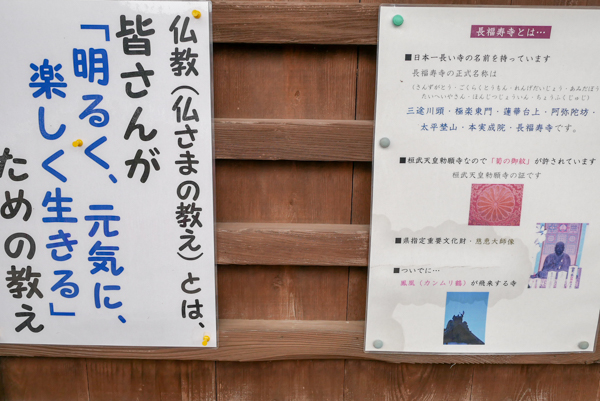 仏教(仏さまの教え)とは、
皆さんが
「明るく、元気に、
楽しく生きる」
ための教え
長福寿寺とは…
■日本一長い寺の名前を持っています
長福寿寺の正式名称は
(さんずがとう・ごくらくとうもん・れんげだいじょう・あみだぼう
たいへいやさん・ほんじつじょういん・ちょうふくじゅじ)
三途河頭・極楽東門・蓮華台上・阿弥陀坊・
太平埜山・本実成院・長福寿寺です。
■桓武天皇勅願寺なので「菊の御紋」が許されています
桓武天皇勅願寺の証です
■県指定重要文化財・慈恵大師像
■ついでに…
鳳凰(カンムリ鶴)が飛来する寺